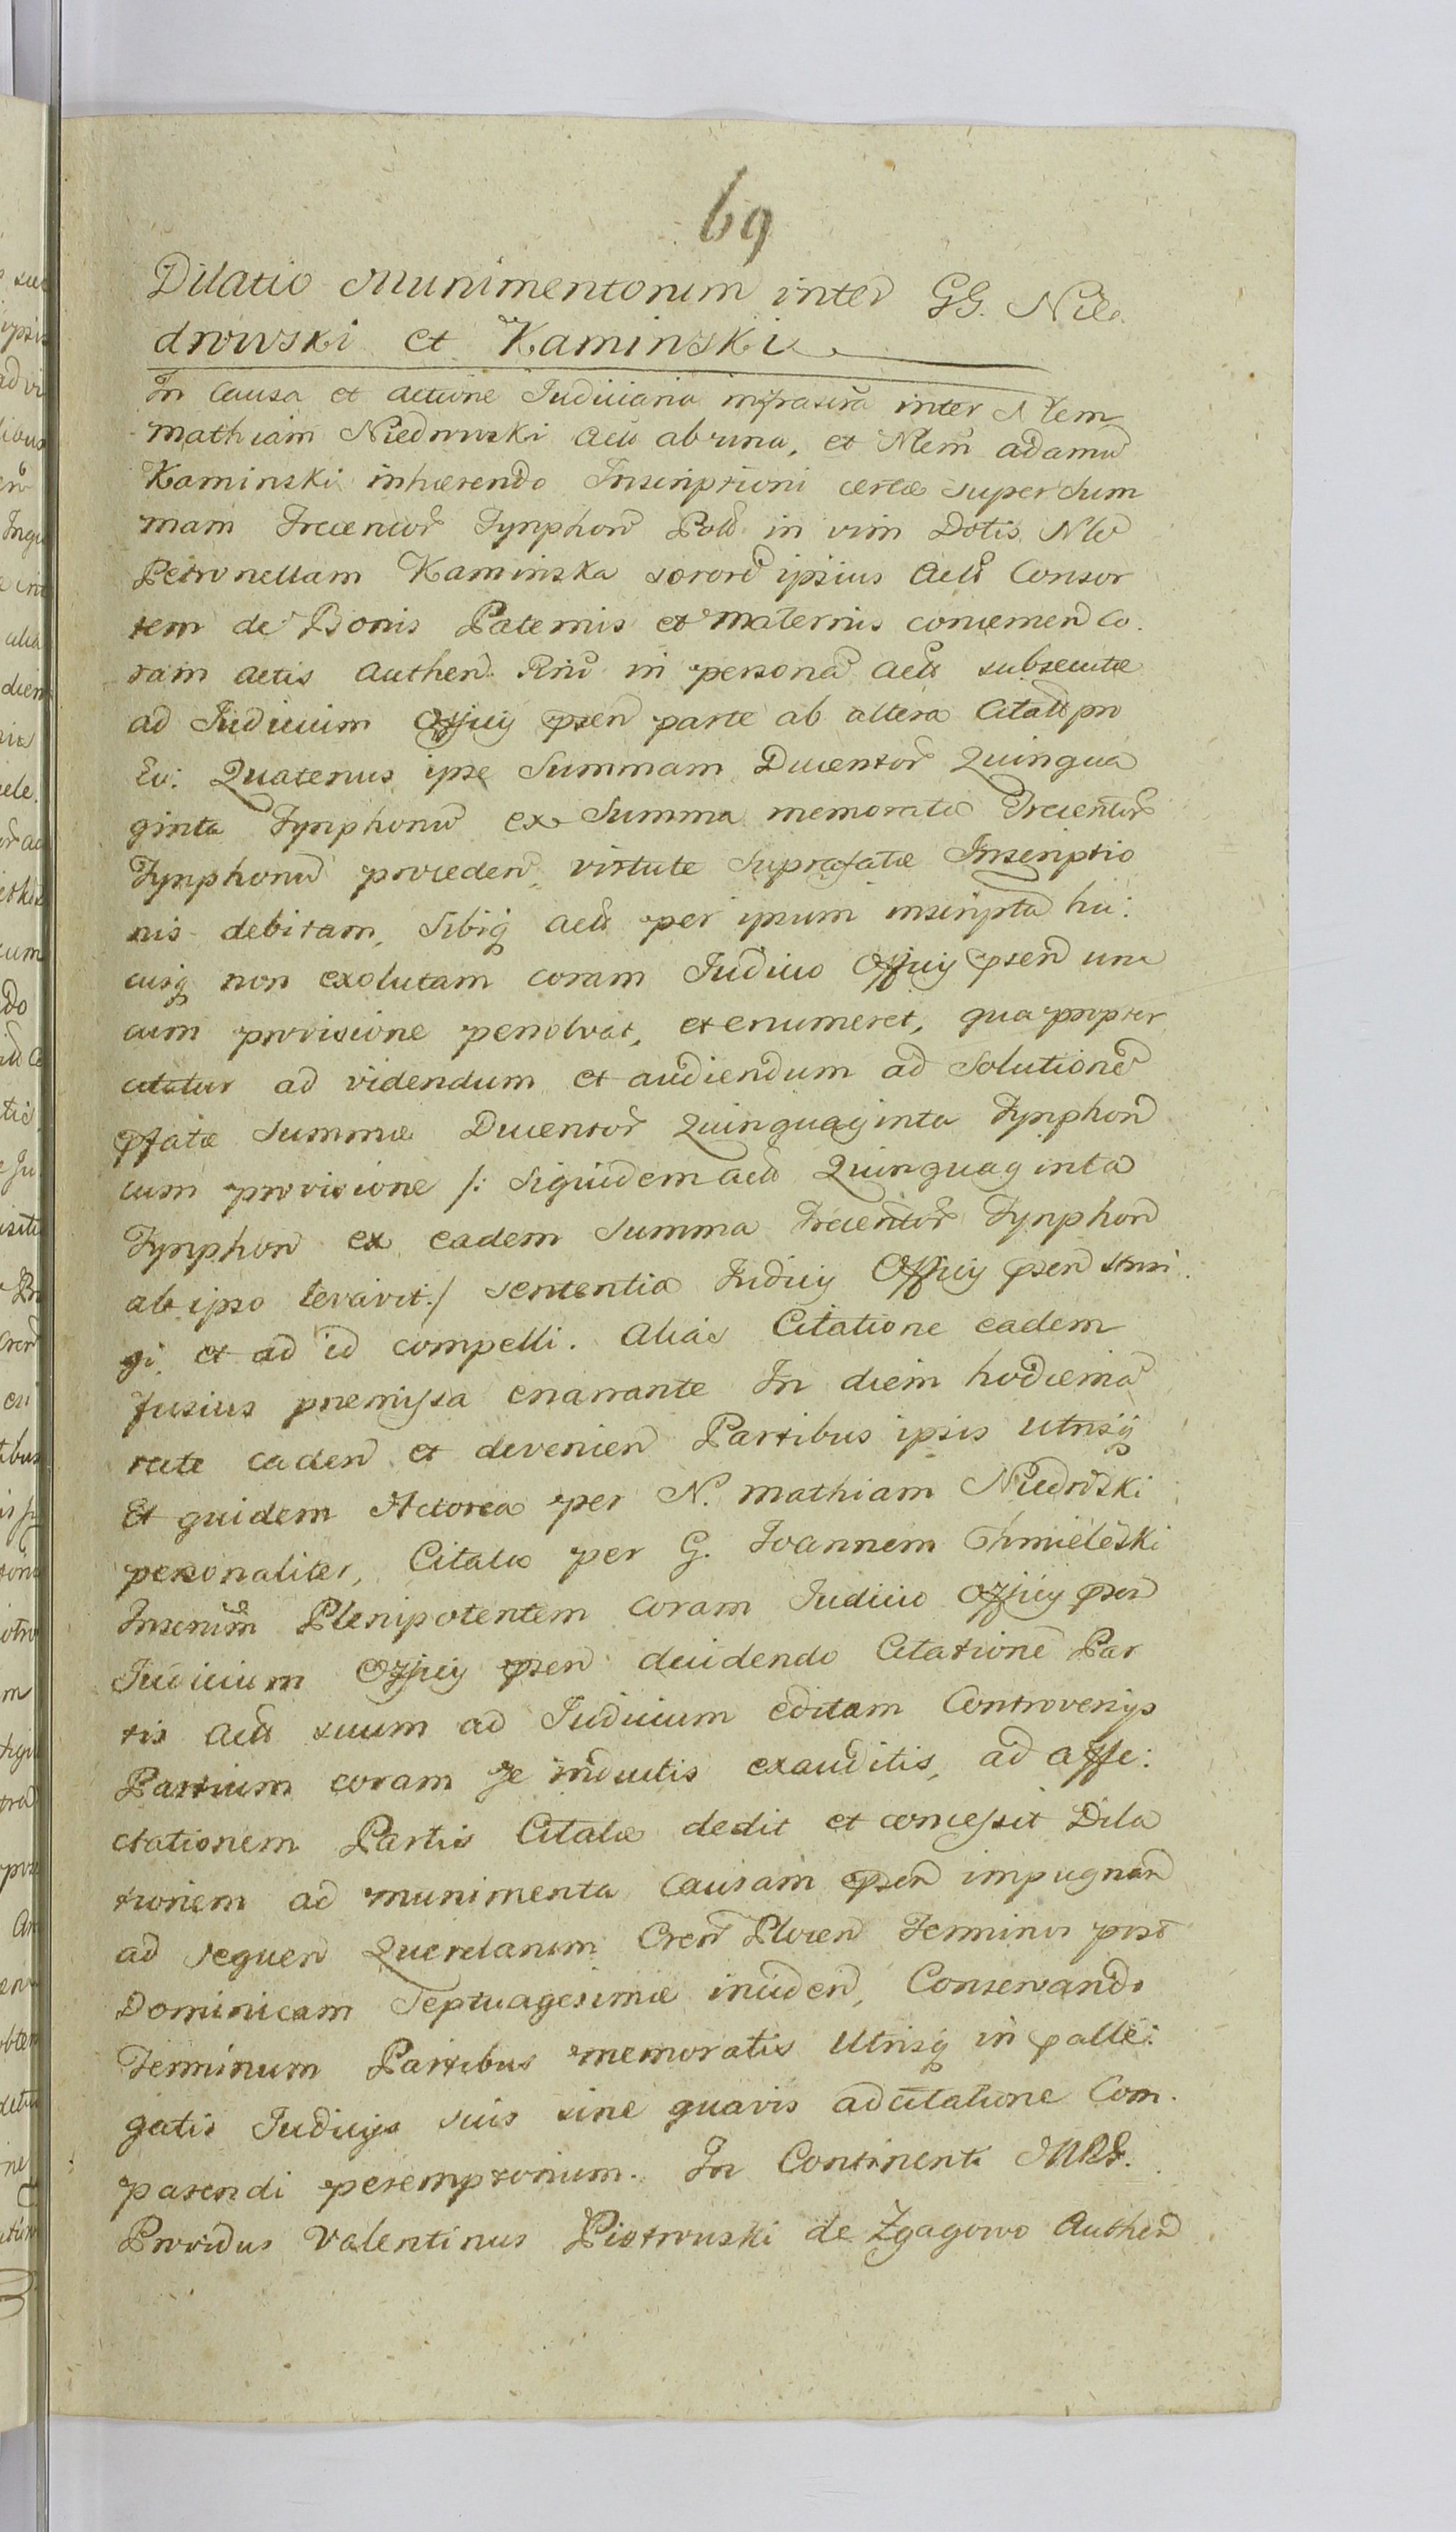 69
Dilatio Munimentorum inter GG. Nie
drowski et Kaminski
In Causa et actione Judiciaria infrascra inter Nlem
Mathiam Niedrowski Act ab una, et Nlem Adamu
Kaminski inhærendo Inscriptioni certæ super Sum
mam Trecentor Tynphon Pol in vim Dotis Nle
Petronellam Kaminska soror ipsius Act Consor
tem de Bonis Paternis et Maternis concernen Co
ram Actis Authen Rnu in persona Act subsecutæ
ad Judicium Officij psen parte ab altera Citat pro
Eo: Quatenus ipse Summam Ducentor Quinqua
ginta Tynphonu ex Summa memorata Trecentor
Tynphonu proceden, virtute Suprafatæ Inscriptio
nis debitam, Sibiq Act per ipsum inscripta hu:
cusq non exolutam coram Judicio Officij psen una
cum provisione persolvat, et enumeret, qua propter
citatur ad videndum et audiendum ad Solutione
pfatæ Summæ Ducentor Quinquaginta Tynphon
cum provisione /: Siquidem Act Quinquaginta
Tynphon ex eadem Summa Trecentor Tynphon
ab ipso levavit :/ Sententia Judicij Officij psen stri
gi, et ad id compelli. Alias Citatione eadem
fusius præmissa enarrante In diem hodierna
rite caden et devenien Partibus ipsis utrisq
Et quidem Actorea per N. Mathiam Niedrwski
personaliter, Citata per G. Joannem Chmieleski
Plenipotentem coram Judicio Officij psen
Judicium Officij psen decidendo Citatione Par
tis Act suum ad Judicium editam Controversijs
Partium coram se inductis exauditis, ad affe:
ctationem Partis Citatæ dedit et concessit Dila
tionem ad munimenta Causam psen impugnan
ad sequen Querelarum Cren Plocen Terminos post
Dominicam Septuagesimæ inciden, Conservando
Terminum Partibus memoratis Utrisq in palle:
gatis Judicijs suis sine quavis adcitatione Com
parendi peremptorium. In Continenti
Providus Valentinus Piotrowski de Zgagowo Authen